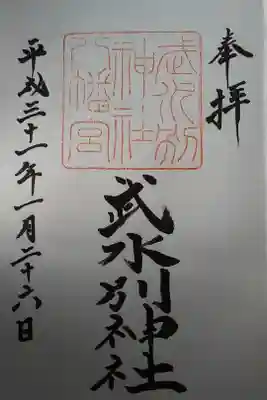 奉拝
武水別
神社
八幡宮
武水別神社
平成三十一年一月二十六日